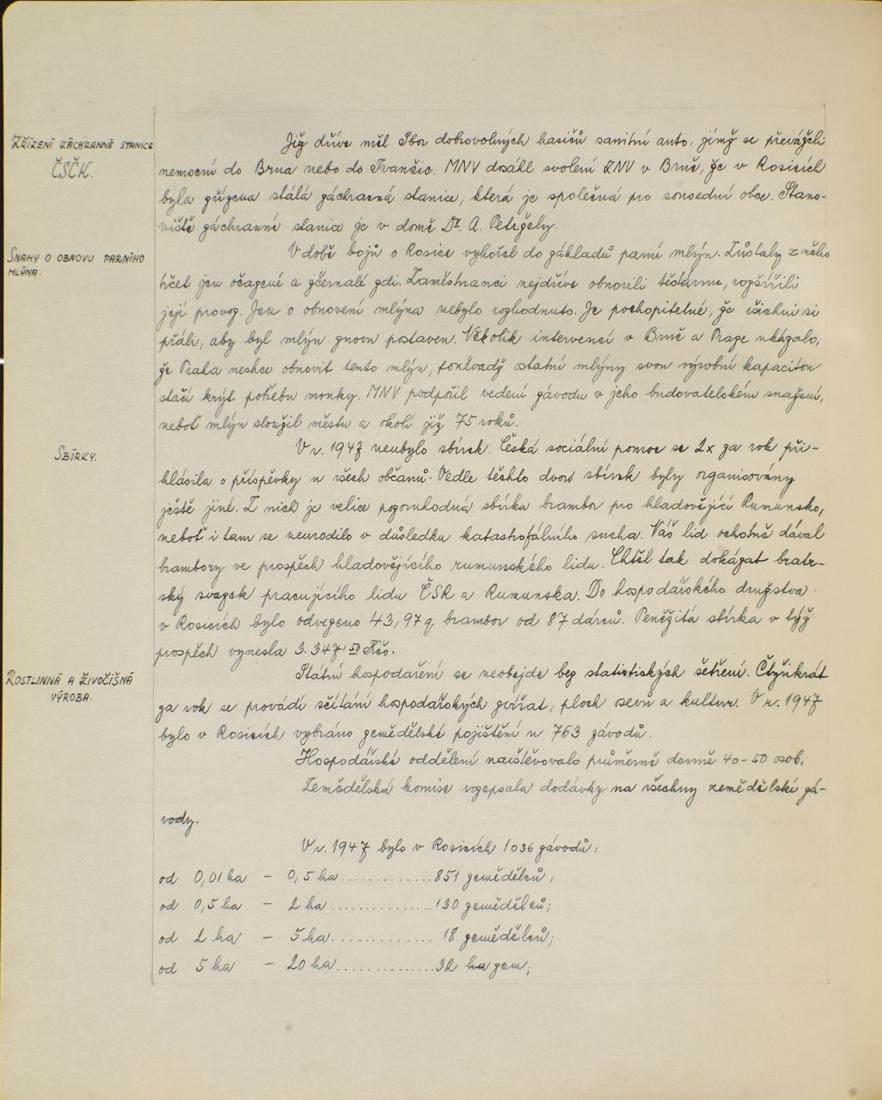 Zřízení záchranné stanice
ČSČK.
Již dříve měl Sbor dobrovolných hasičů sanitní auto, jímž se převáželi
nemocní do Brna nebo do Ivančic. MNV dosáhl svolení ZNV v Brně, že v Rosicích
byla zřízena stálá záchranná stanice, která je společná pro sousední obce. Stano-
viště záchranné stanice je v domě Dr. A. Petržely.
Snahy o obnovu parního
mlýna.
V době bojů o Rosice vyhořel do základů parní mlýn. Zůstaly z něho
trčet jen očazené a zčernalé zdi. Zaměstnanci nejdříve obnovili těstárnu, rozšířili
její provoz. Jen o obnovení mlýna nebylo rozhodnuto. Je pochopitelné, že všichni si
přáli, aby byl mlýn znovu postaven. Několik intervencí v Brně a Praze ukázalo,
že Praha nechce obnovit tento mlýn, poněvadž ostatní mlýny svou výrobní kapacitou
stačí krýt potřebu mouky. MNV podpořil vedení závodu v jeho budovatelském snažení,
neboť mlýn sloužil městu a okolí již 75 roků.
Sbírky.
V r. 1947 neubylo sbírek. Česká sociální pomoc se 2x za rok při-
hlásila o příspěvky u všech občanů. Vedle těchto dvou sbírek byly organisovány
ještě jiné. Z nich je velice pozoruhodná sbírka brambor pro hladovějící Rumunsko,
neboť i tam se neurodilo v důsledku katastrofálního sucha. Náš lid ochotně dával
brambory ve prospěch hladovějícího rumunského lidu. Chtěl tak dokázat bratr-
ský svazek pracujícího lidu ČSR a Rumunska. Do hospodářského družstva
v Rosicích bylo odvezeno 43,97 q brambor od 87 dárců. Peněžitá sbírka v týž
prospěch vynesla 3.347,50 Kčs.
Rostlinná a živočišná
výroba.
Státní hospodaření se neobejde bez statistických šetření. Čtyřikrát
za rok se provádí sčítání hospodářských zvířat, ploch osevu a kultur. V r. 1947
bylo v Rosicích vybráno zemědělské pojištění u 763 závodů.
Hospodářské oddělení navštěvovalo průměrně denně 40-50 osob.
Zemědělská komise rozepsala dodávky na všechny zemědělské zá-
vody.
V r. 1947 bylo v Rosicích 1036 závodů:
od 0,01 ha - 0,5 ha............851 zemědělců,
od 0,5 ha - 2 ha..............130 zemědělců;
od 2 ha - 5 ha.............. 18 zemědělců;
od 5 ha - 20 ha..............32 ha zem;